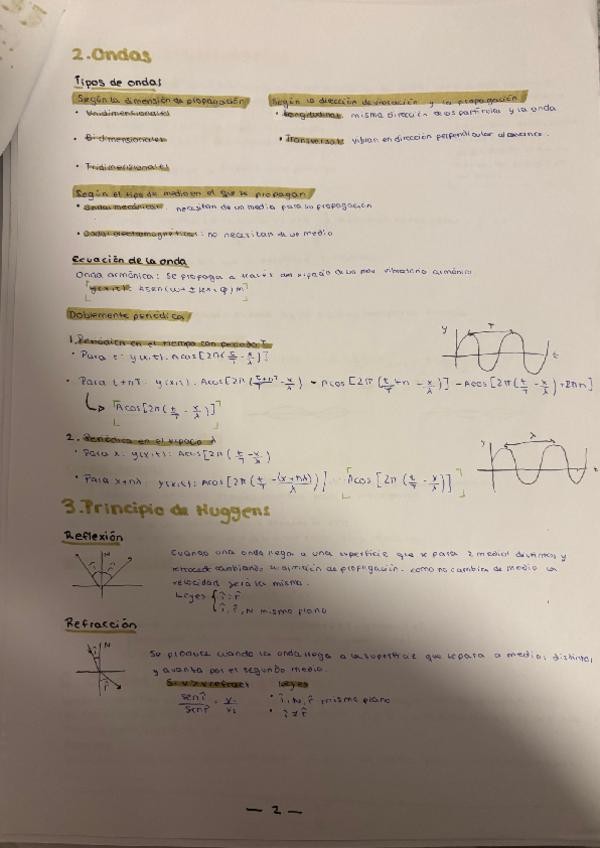 2. Ondas
Tipos de ondas
Según la dimensión de propagación
• Unidimensionales
• Bidimensionales
• Tridimensionales
Según la dirección de vibración y la propagación
• Longitudinal: misma dirección de las partículas y la onda
• Transversal: vibran en dirección perpendicular al avance.
Según el tipo de medio en el que se propagan
• Ondas mecánicas: necesitan de un medio para su propagación
• Ondas electromagnéticas: no necesitan de un medio
Ecuación de la onda
Onda armónica: Se propaga a través del espacio de un mov vibratorio armónico
y(x,t): A sen(ωt ± kx, φ) m
Doblemente periódica
1. Periódica en el tiempo con periodo T
• Para t: y(x,t): Acos[2π(t/T - x/λ)]
• Para t+nT: y(x,t): Acos[2π(t+nT/T - x/λ) = Acos[2π(t/T+n - x/λ)] = Acos[2π(t/T - x/λ)+2πn]
Acos[2π(t/T - x/λ)]
y T t
2. Periódica en el espacio λ
• Para x: y(x,t): Acos[2π(t/T - x/λ)
• Para x+nλ: y(x,t): Acos[2π(t/T - (x+nλ)/λ)] Acos[2π(t/T - x/λ)]
y λ x
3. Principio de Huggens
Reflexión
N
î r̂
Cuando una onda llega a una superficie que separa 2 medios distintos y
retrocede cambiando su dirección de propagación. como no cambia de medio la
velocidad será la misma.
Leyes { î = r̂
î, r̂, N mismo plano
Refracción
N
î
r̂
Se produce cuando la onda llega a la superficie que separa 2 medios distintos
y avanza por el segundo medio.
Leyes
sen î / sen r̂ = v₁/v₂
• î, N, r̂ mismo plano
• î ≠ r̂
— 2 —